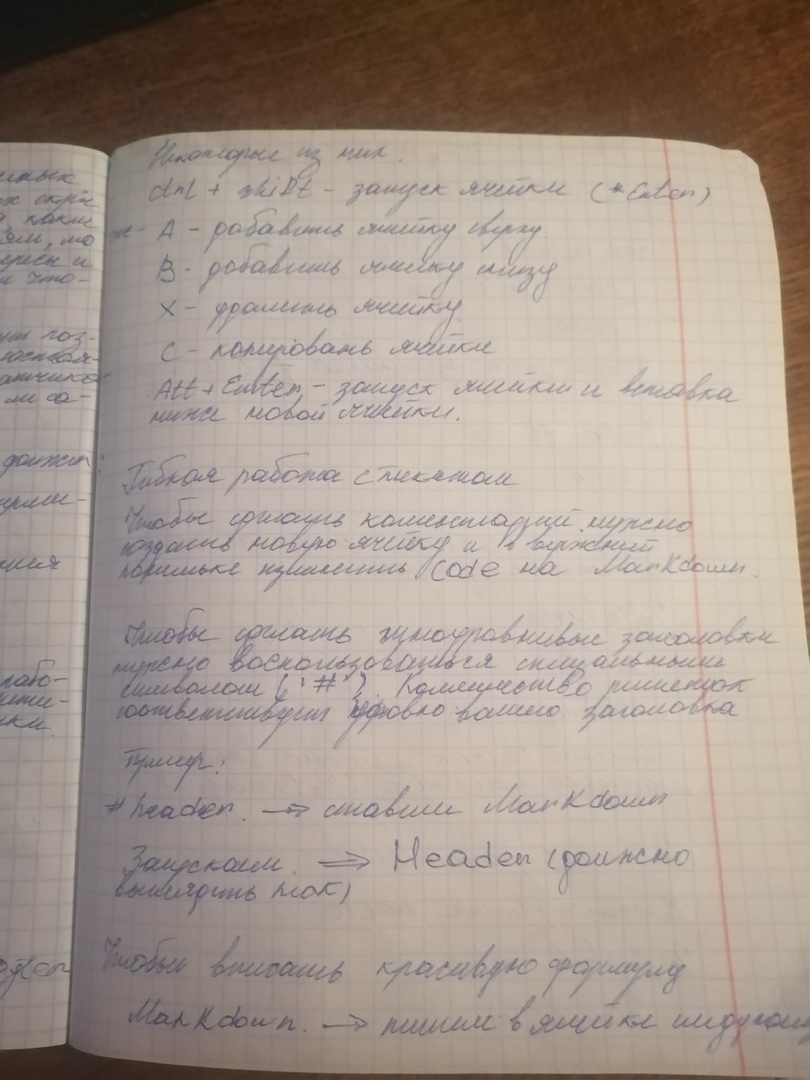 Некоторые из них.
ctrl + shift - запуск ячейки (* Enter)
A - добавить ячейку сверху
B - добавить ячейку снизу
X - удалить ячейку
C - копировать ячейки
Alt + Enter - запуск ячейки и вставка
ниже новой ячейки.
Гибкая работа с текстом
Чтобы сделать коментарий нужно
создать новую ячейку и в верхней
изменить Code на Markdown.
Чтобы сделать заголовки
нужно воспользоваться специальным
символом ('#'). Количество решеток
соответствует уровню вашего заголовка
Пример:
# header. → ставим Markdown
Запускаем. ⇒ Header (должно
выглядеть так)
Чтобы вписать красивую формулу
Markdown. → пишем в ячейке
должен:
рабо-